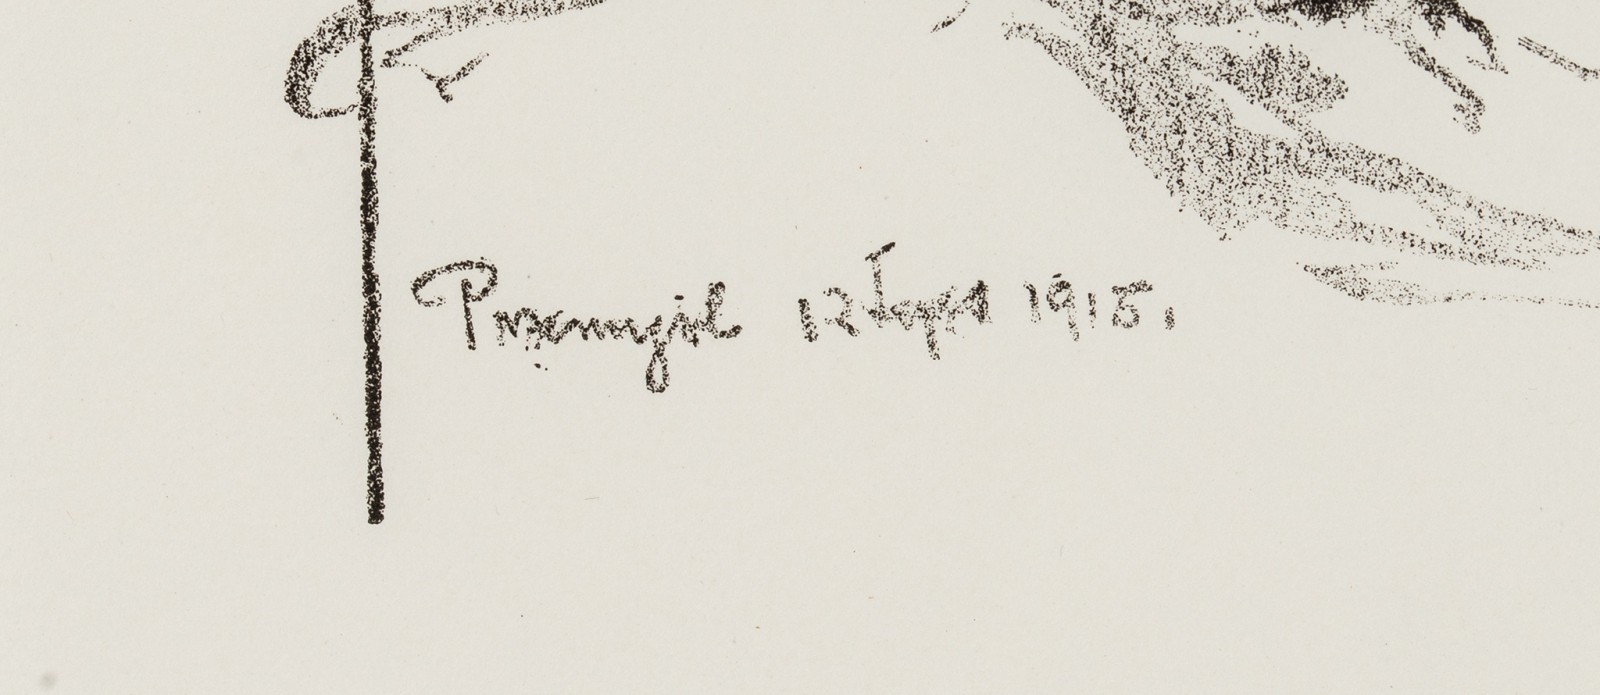 Przemyśl 12 Sept 1915.